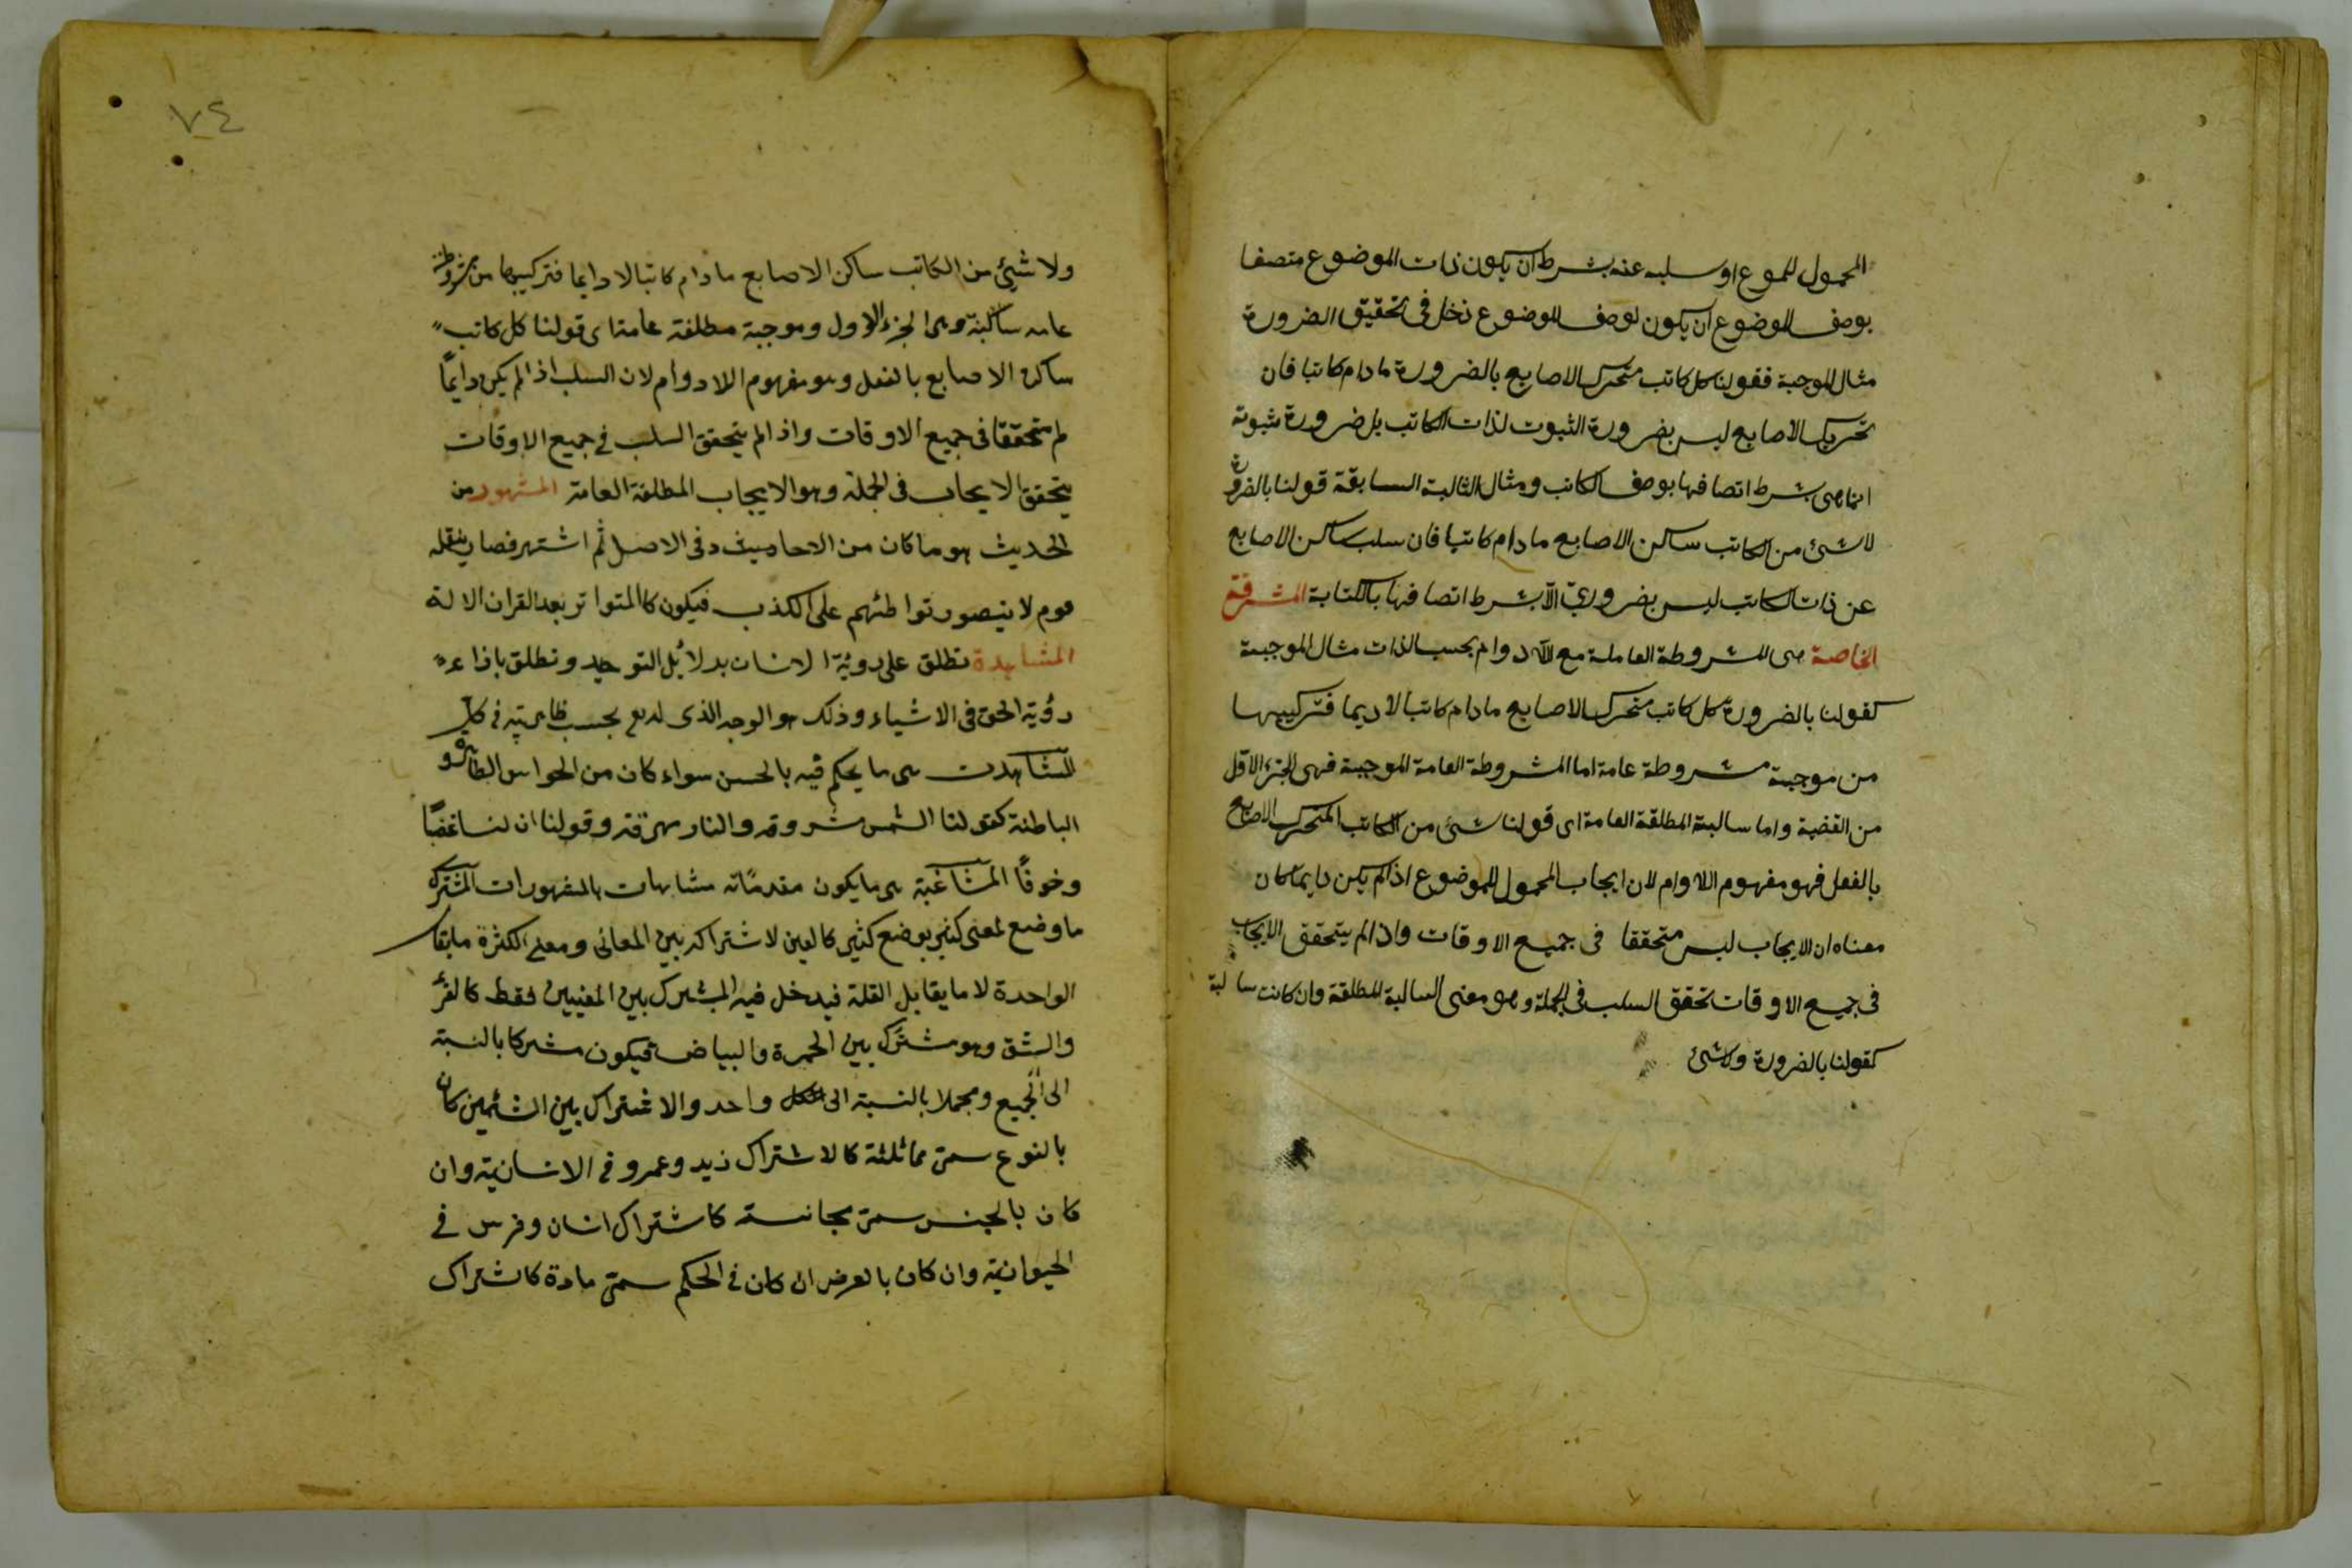 المحمول للموع او سلبه عنه بشرط ان يكون ذات الموضوع متصفا
بوصف الموضوع ان يكون لوصف الموضوع دخل فى تحقيق الضرورة
مثال الموجبة فقولنا كل كاتب متحرك الاصابع بالضرورة مادام كاتبا فان
تحريك الاصابع ليس بضرورة الثبوت لذات الكاتب بل ضرورة ثبوته
انما هى بشرط اتصافها بوصف الكاتب ومثال الثالبة السابقة قولنا بالضرورة
لاشئ من الكاتب ساكن الاصابع مادام كاتبا فان سلب ساكن الاصابع
عن ذات الكاتب ليس بضرورىّ الّا بشرط اتصافها بالكتابة المشرفة
الخاصة هى المشروطة العاملة مع اللّادوام بحسب الذات مثال الموجبة
كقولنا بالضرورة كل كاتب متحرك الاصابع مادام كاتبا لاديما فتركيبها
من موجبة مشروطة عامة اما المشروطة العامة الموجبة فهى الجزء الاوّل
من القضية واما سالبة المطلقة العامة اى قولنا شئ من الكاتب المتحرك الاصابع
بالفعل فهو مفهوم اللاوام لان ايجاب المحمول للموضوع اذا لم يكن دايما كان
معناه ان الايجاب ليس متحققا فى جميع الاوقات واذا لم يتحقق الايجاب
فى جميع الاوقات تحقق السلب فى الجملة وهو معنى السالبة المطلقة وان كانت سالبة
كقولنا بالضرورة ولاشئ
٧٤
ولا شيئ من الكاتب ساكن الاصابع مادام كاتبا لا دايما فتركيبها من مشروطة
عامه سالبة وهى الجزء الاول وموجبة مطلقة عامة اى قولنا كل كاتب
ساكن الاصابع بالفعل وهو مفهوم اللادوام لان السلب اذا لم يكن دايمًا
لم متحققا فى جميع الاوقات واذا لم يتحقق السلب فى جميع الاوقات
يتحقق الايجاب فى الجملة وهو الايجاب المطلقة العامة المشهور من
الحديث هو ما كان من الاحاد فى الاصل ثم اشتهر فصار ينقله
قوم لا يتصور تواطئهم على الكذب فيكون كالمتواتر بعد القران الالة
المشاهدة تطلق على روئية الانسان بدلائل التوحيد وتطلق باذاء
رؤية الحق فى الاشياء وذلك هو الوجه الذى له بحسب ظاهريته فى كل
المشاهدت هى ما يحكم فيه بالحسن سواء كان من الحواس الظاهرة و
الباطنة كقولنا الشمس مشروقه والنار محرقة وقولنا ان لنا غضبًا
وخوفًا المشاغبة هى ما يكون مقدماته مشابهات بالمشهورات المشترك
ما وضع لمعنى كثير بوضع كثير كالعين لاشتراكه بين المعانى ومعنى الكثرة مايقابل
الواحدة لا ما يقابل القلة فيدخل فيه المشترك بين المعنيين فقط كالقرء
والشق وهو مشترك بين الحمرة والبياض فيكون مشركا بالنسبة
الى الجميع ومجملا بالنسبة الى كل واحد والاشتراك بين الشئين كان
بالنوع سمى مماثلثة كالاشتراك زيد وعمرو فى الانسانية وان
كان بالجنس سمى مجانسة كاشتراك انسان وفرس فى
الحيوانية وان كان بالعرض ان كان فى الحكم سمى مادة كاشتراك